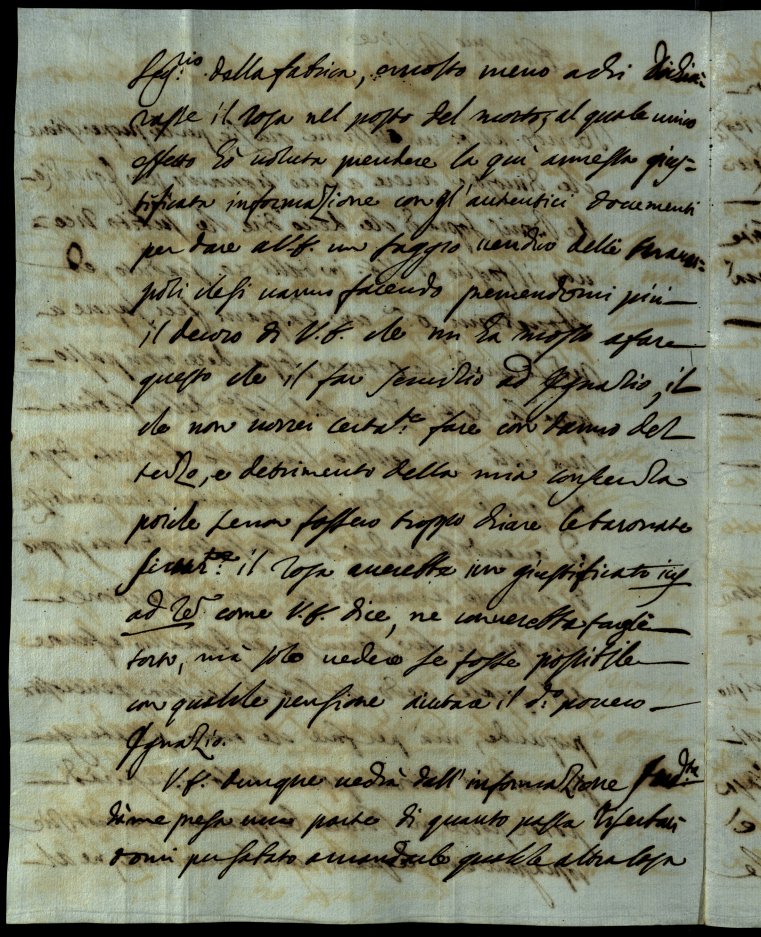 Seg.rio della fabrica, e molto meno a chi dichia=
rasse il Rosa nel posto del morto, al quale unico
effetto hò voluta prendere la qui annessa gius=
tificata informazione con gl'autentici documenti
per dare all'V.S. un saggio veridico delle
poli che si vanno facendo premendomi più
il decoro di V.S. che mi ha mosso a fare
questo che il far servizio ad Ignazio, il
che non vorrei certa.te fare con danno del
terzo, e detrimento della mia conscienza
poiche se non fossero troppo chiare le baronate
il Rosa averebbe un giustificato ius
ad rem come V.S. dice, ne converebbe fargli
torto, mà solo vedere se fosse possibile
con qualche pensione aiutare il d.o povero
Ignazio.
V.S. dunque vedrà dall'informazione sud.ta
da me presa una parte di quanto passa riserban
domi per sabato a mandarle qualche altra cosa